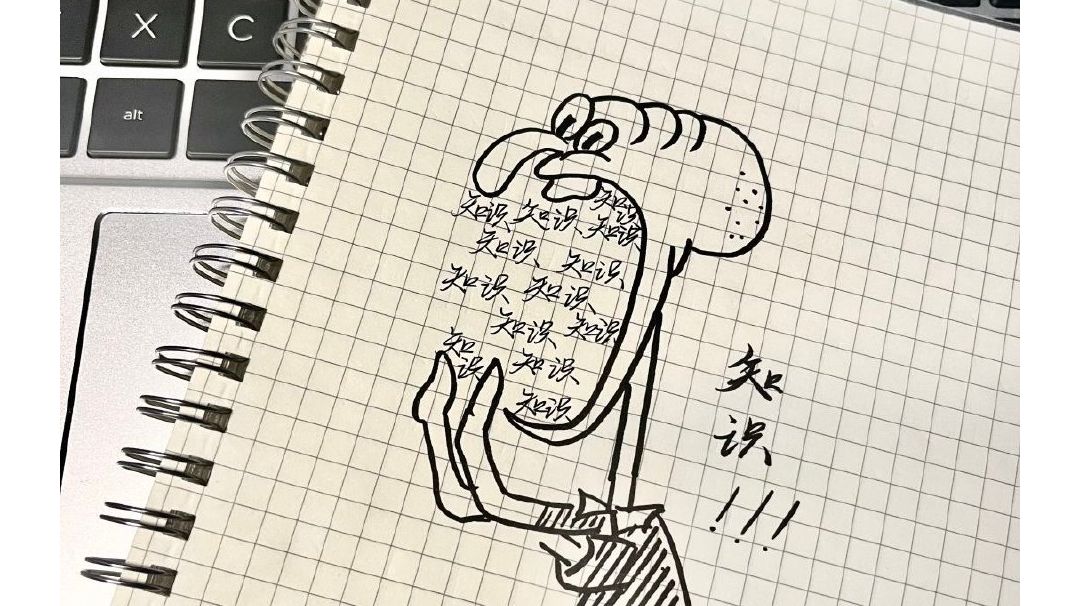 X C
alt
知识
知识 知识 知识
知识 知识
知识 知识
知识 知识
知识 知识
知识
知
识
!!!